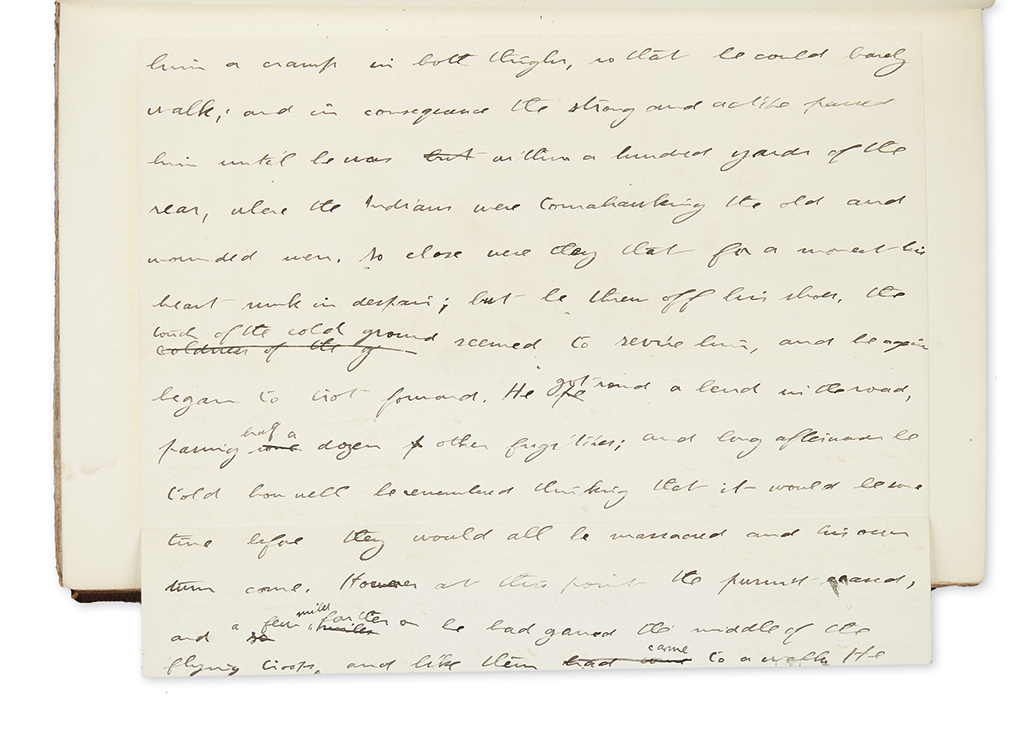 him a cramp in both thighs, so that he could barely
walk; and in consequence the strong and active passed
him until he was but within a hundred yards of the
rear, where the Indians were tomahawking the old and
wounded men. So close were they that for a moment his
heart sunk in despair; but he threw off his shoes, the
touch of the cold ground
coldness of the g seemed to revive him, and he again
began to trot forward. He got round a bend in the road,
passing half a dozen other fugitives; and long afterwards he
told how well he remembered thinking that it would be some
time before they would all be massacred and his own
turn come. However at this point the pursuit ceased,
and a few miles farther on he had gained the middle of the
flying troops, and like them had come came to a walk. He